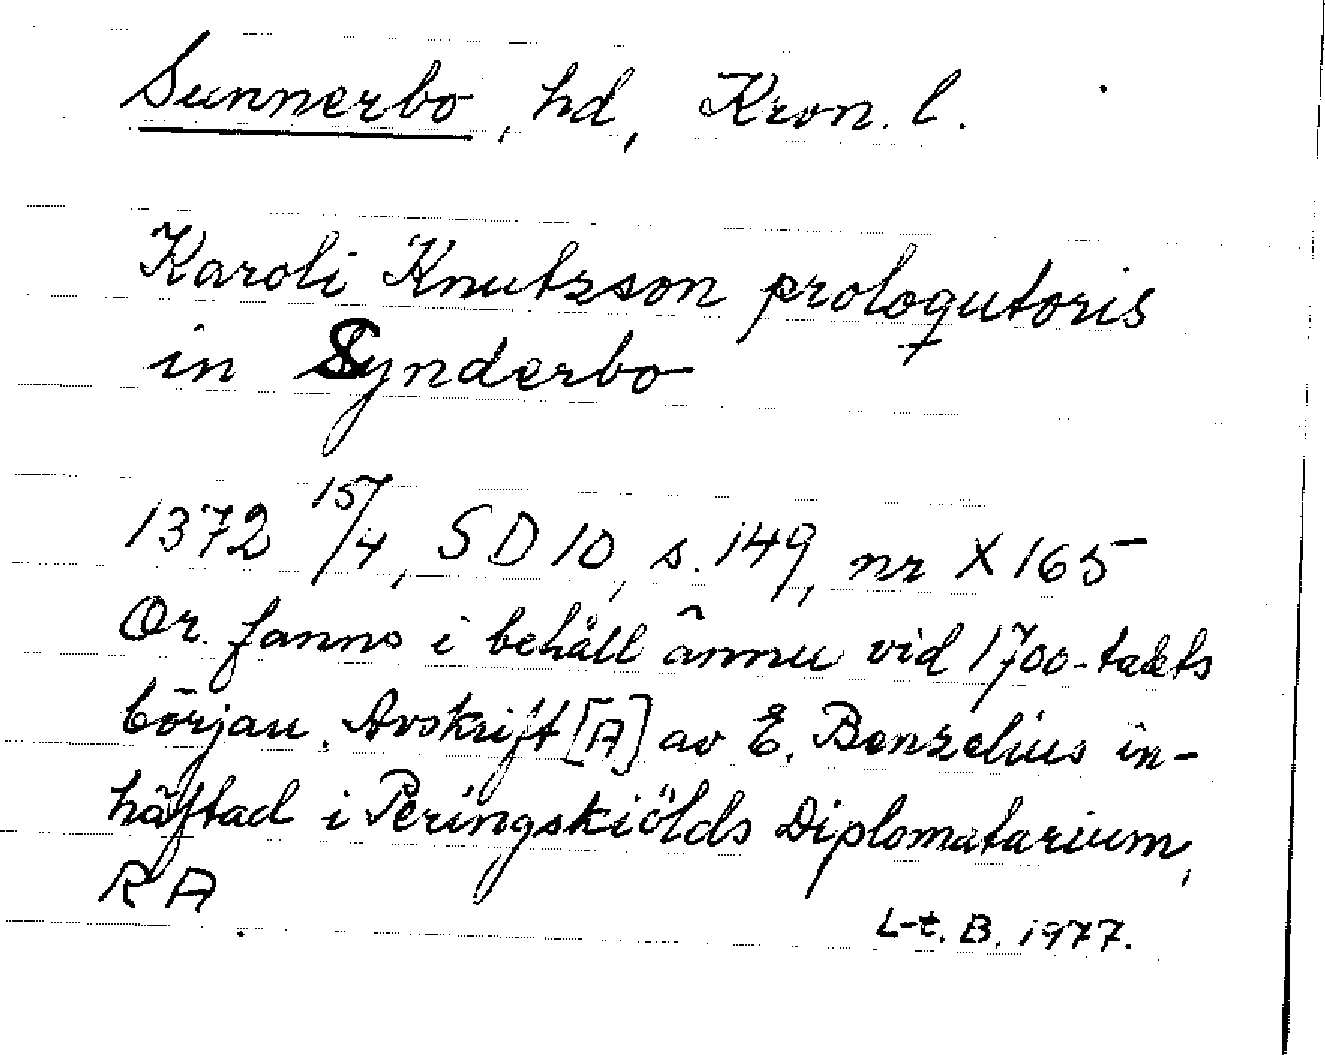 Sunnerbo, hd, Kron. l.
Karoli Knutzson prologutoris
in Synderbo
1372 15/4, SD 10, s. 149, nr X 165
Or. fanns i behåll ännu vid 1700-talets
början. Avskrift [A] av E. Benzelius in-
häftad i Peringskiölds Diplomatarium,
RA.
L-t. B. 1977.